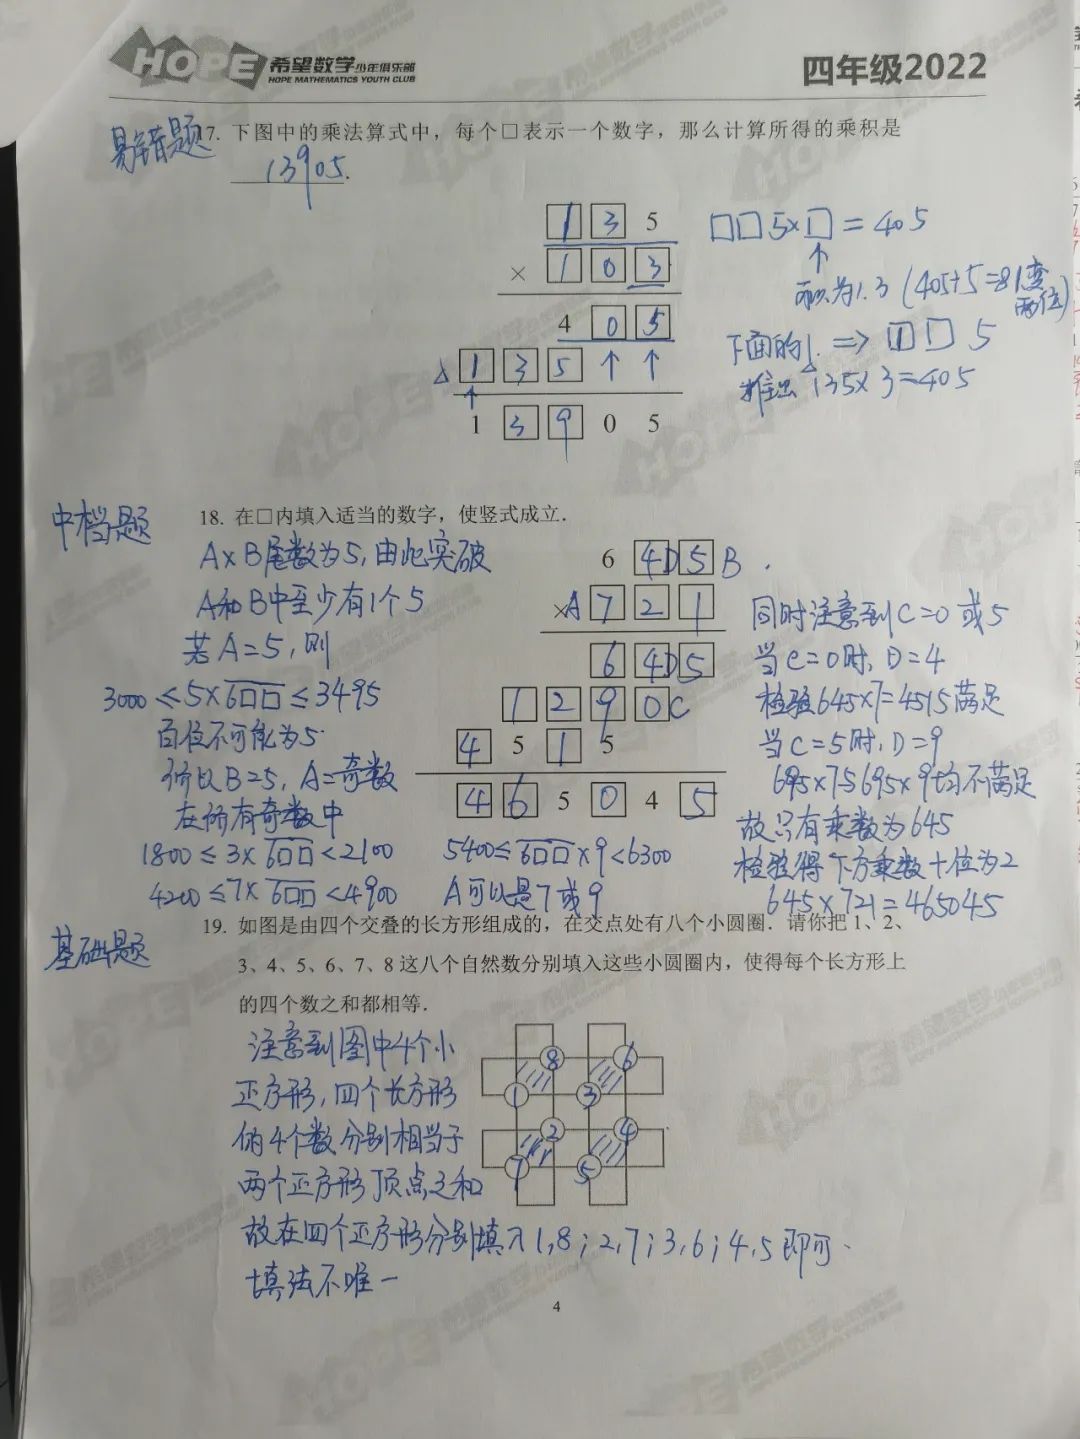 HOPE 希望数学少年俱乐部
HOPE MATHEMATICS YOUTH CLUB
四年级2022
易错题
17. 下图中的乘法算式中，每个□表示一个数字，那么计算所得的乘积是
13905.
1 3 5
× 1 0 3
4 0 5
1 3 5
1 3 9 0 5
□□5×□=405
↑
可以为1.3 (405÷5=81变两位)
下面的1. ⇒ 1□ 5
推出 135×3=405
中档题
18. 在□内填入适当的数字，使竖式成立.
A×B尾数为5,由此突破
A和B中至少有1个5
若A=5,则
3000≤5×6□□≤3495
百位不可能为5
所以B=5, A=奇数
在所有奇数中
1800≤3×6□□<2100
4200≤7×6□□<4900
5400≤6□□×9<6300
A可以是7或9
6 4D 5 B
×A 7 2 1
6 4D 5
1 2 9 0 C
4 5 1 5
4 6 5 0 4 5
同时注意到C=0或5
当C=0时, D=4
检验645×7=4515满足
当C=5时, D=9
695×7与695×9均不满足
故只有乘数为645
检验得下方乘数十位为2
645×721=465045
基础题
19. 如图是由四个交叠的长方形组成的，在交点处有八个小圆圈. 请你把1、2、
3、4、5、6、7、8这八个自然数分别填入这些小圆圈内，使得每个长方形上
的四个数之和都相等.
注意到图中4个小
正方形,四个长方形
的4个数分别相当于
两个正方形顶点之和
故在四个正方形分别填入1,8;2,7;3,6;4,5即可.
填法不唯一
8 6
1 3
2 4
7 5
4